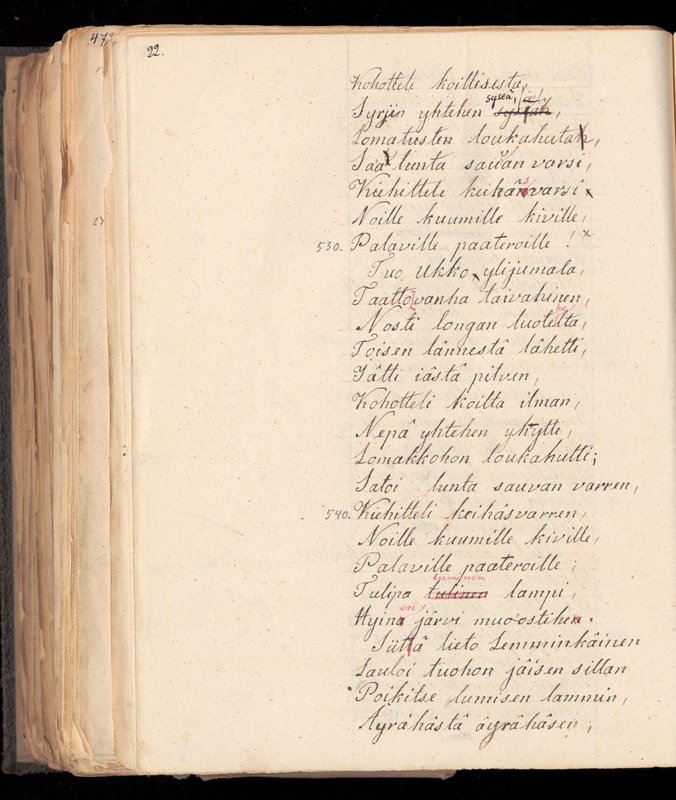 473
22.
Kohottele koillisesta,
syseä,
Syrjin yhtehen
Lomatusten loukahutah,
Saa lunta sauvan varsi,
Kiehittele keihäs varsi
Noille kuumille kiville,
530. Palaville paateroille! x
Tuo Ukko, ylijumala,
Taatto vanha taivahinen,
Nosti longan luotelta,
Toisen lännestä lähetti,
Iätti iästä pilven,
Kohotteli koilta ilman,
Nepä yhtehen ykytti,
Lomakkohon loukahutti;
Satoi lunta sauvan varren,
540. Kiehitteli keihäsvarren,
Noille kuumille kiville,
Palaville paateroille;
luminen
Tulipa tulinen lampi,
en
Hyinä järvi muo'ostihen.
Siitä lieto Lemminkäinen
Lauloi tuohon jäisen sillan
Poikitse lumisen lammin,
Äyrähästä äyrähäsen;
23